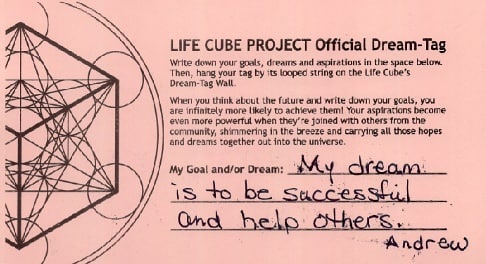 LIFE CUBE PROJECT Official Dream-Tag
Write down your goals, dreams and aspirations in the space below.
Then, hang your tag by its looped string on the Life Cube's
Dream-Tag Wall.
When you think about the future and write down your goals, you
are infinitely more likely to achieve them! Your aspirations become
even more powerful when they're joined with others from the
community, shimmering in the breeze and carrying all those hopes
and dreams together out into the universe.
My Goal and/or Dream: My dream
is to be successful
and help others.
Andrew